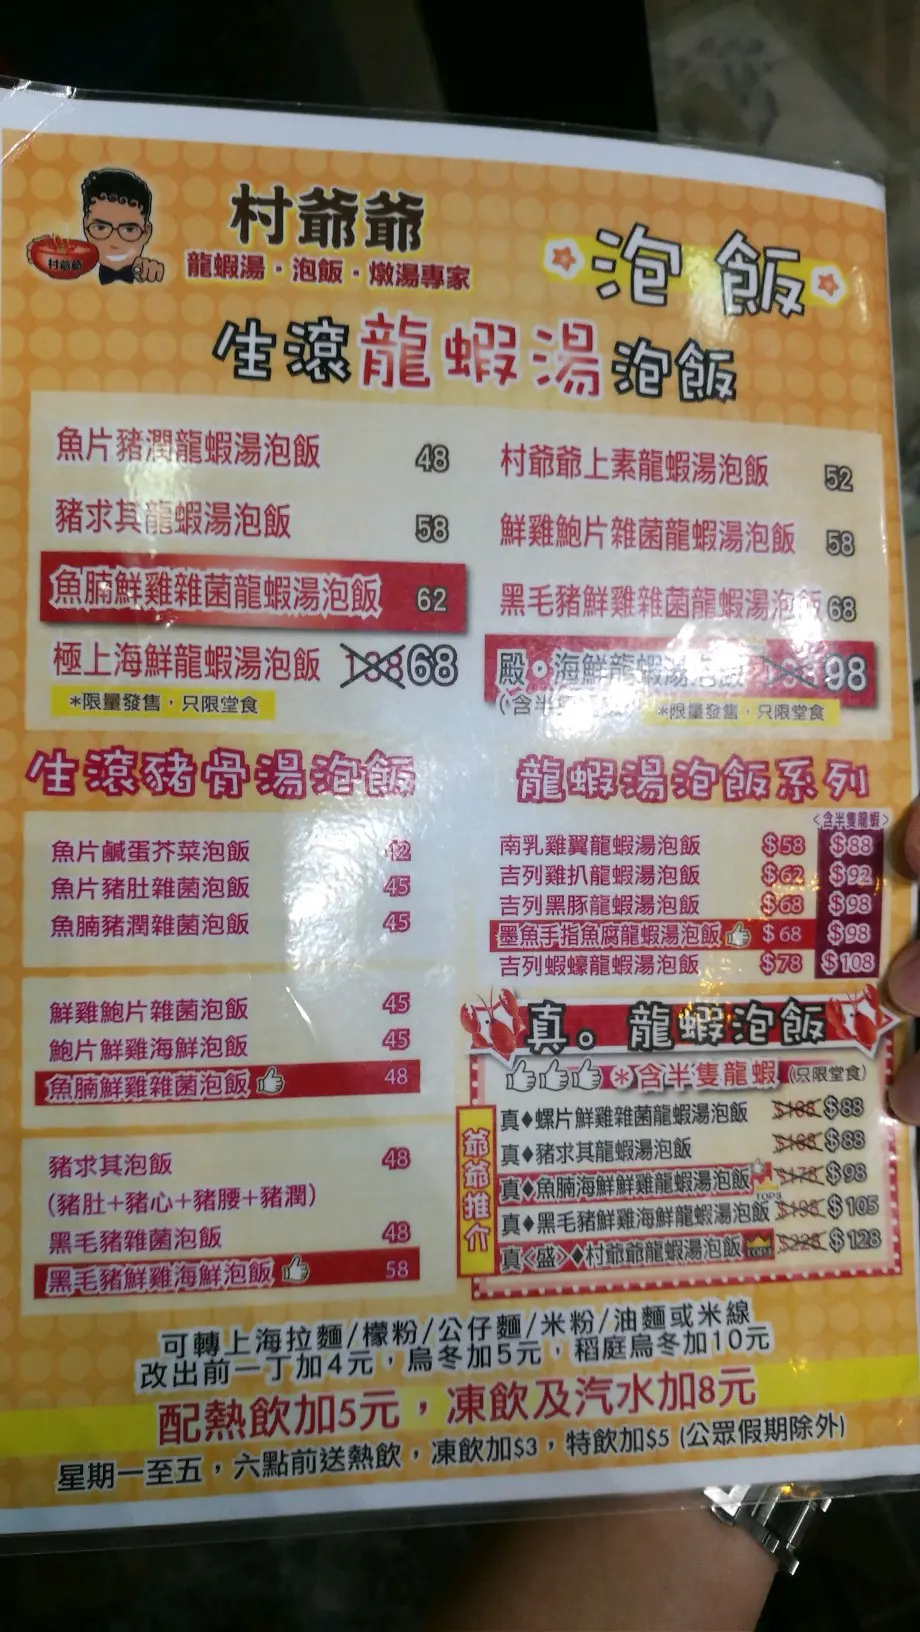 村爺爺
村爺爺
龍蝦湯・泡飯・燉湯專家
泡飯
生滾龍蝦湯泡飯
魚片豬潤龍蝦湯泡飯 48
豬求其龍蝦湯泡飯 58
魚腩鮮雞雜菌龍蝦湯泡飯 62
極上海鮮龍蝦湯泡飯 68
*限量發售，只限堂食
村爺爺上素龍蝦湯泡飯 52
鮮雞鮑片雜菌龍蝦湯泡飯 58
黑毛豬鮮雞雜菌龍蝦湯泡飯 68
殿・海鮮龍蝦湯泡飯 98
(含半
*限量發售，只限堂食
生滾豬骨湯泡飯
魚片鹹蛋芥菜泡飯 42
魚片豬肚雜菌泡飯 45
魚腩豬潤雜菌泡飯 45
鮮雞鮑片雜菌泡飯 45
鮑片鮮雞海鮮泡飯 45
魚腩鮮雞雜菌泡飯 48
豬求其泡飯 48
(豬肚+豬心+豬腰+豬潤)
黑毛豬雜菌泡飯 48
黑毛豬鮮雞海鮮泡飯 58
龍蝦湯泡飯系列
<含半隻龍蝦>
南乳雞翼龍蝦湯泡飯 $58 $88
吉列雞扒龍蝦湯泡飯 $62 $92
吉列黑豚龍蝦湯泡飯 $68 $98
墨魚手指魚腐龍蝦湯泡飯 $68 $98
吉列蝦蠔龍蝦湯泡飯 $78 $108
真。龍蝦泡飯
*含半隻龍蝦 (只限堂食)
爺爺推介
真♦螺片鮮雞雜菌龍蝦湯泡飯 $188 $88
真♦豬求其龍蝦湯泡飯 $188 $88
真♦魚腩海鮮鮮雞龍蝦湯泡飯 TOP3 $178 $98
真♦黑毛豬鮮雞海鮮龍蝦湯泡飯 $198 $105
真<盛>♦村爺爺龍蝦湯泡飯 $228 $128
可轉上海拉麵/檬粉/公仔麵/米粉/油麵或米線
改出前一丁加4元，烏冬加5元，稻庭烏冬加10元
配熱飲加5元，凍飲及汽水加8元
星期一至五，六點前送熱飲，凍飲加$3，特飲加$5 (公眾假期除外)